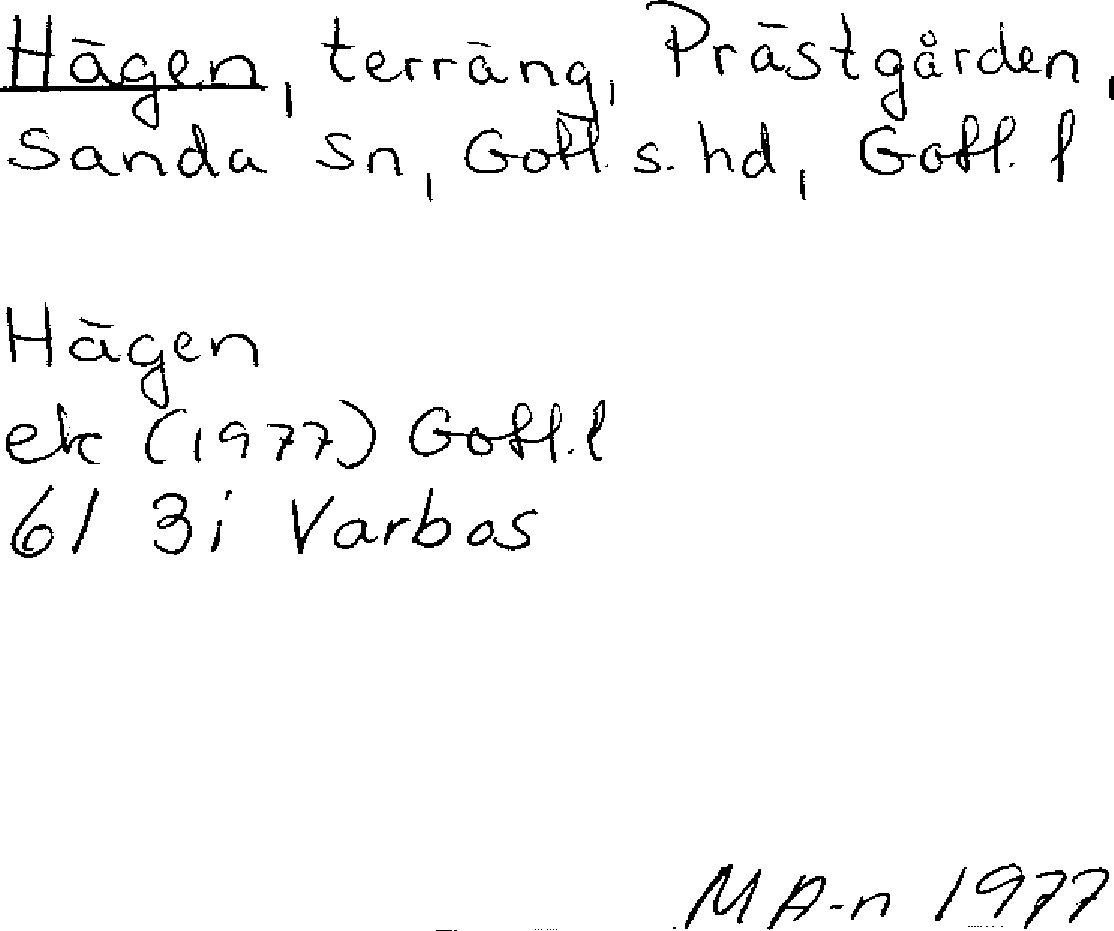 Hägen, terräng, Prästgården,
Sanda sn, Gotl. s. hd, Gotl. l
Hägen
ek (1977) Gotl. l
6I 3i Varbos
MA-n 1977